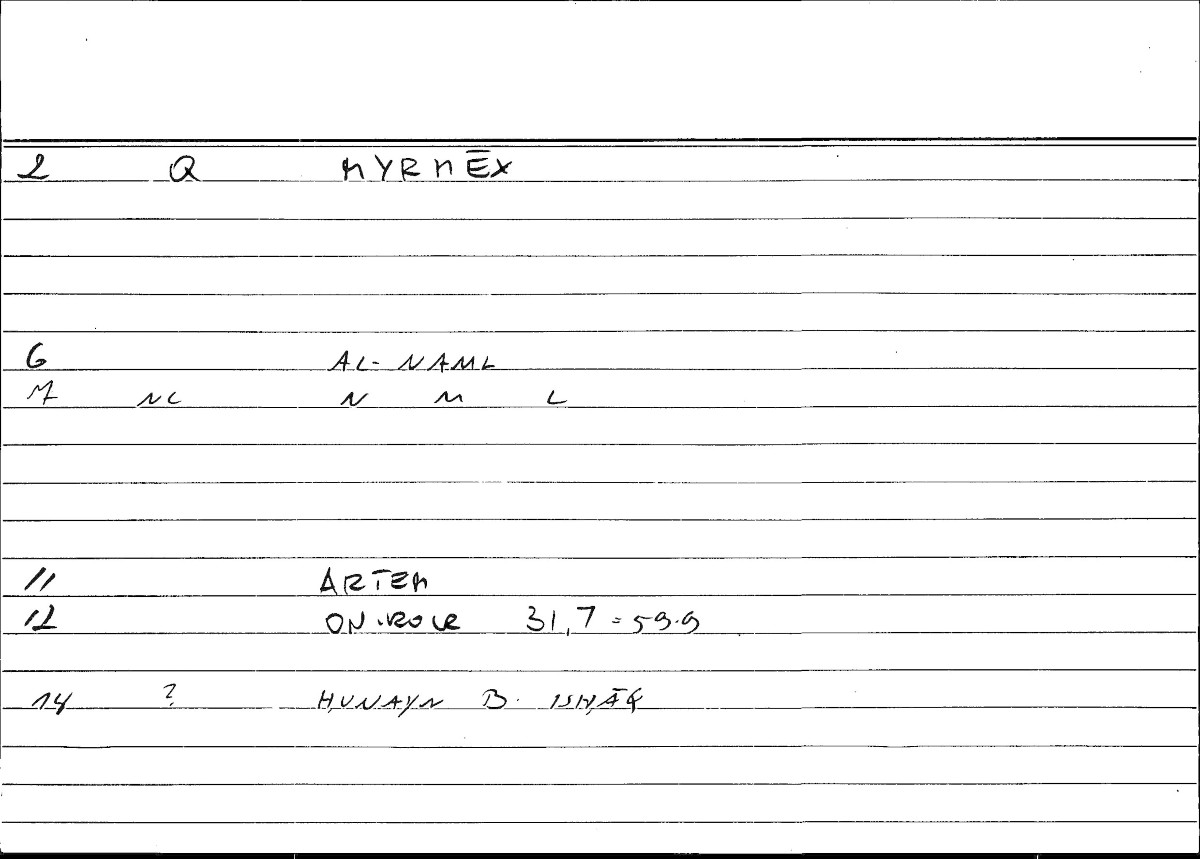 2 Q MYRMĒX
6 AL-NAML
7 NC N M L
11 ARTEM
12 ONIROCR 31,7 = 59.9
14 ? ḤUNAYN B. ISḤĀQ